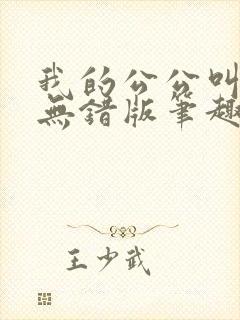 我的公公叫
無錯版筆趣
王少武